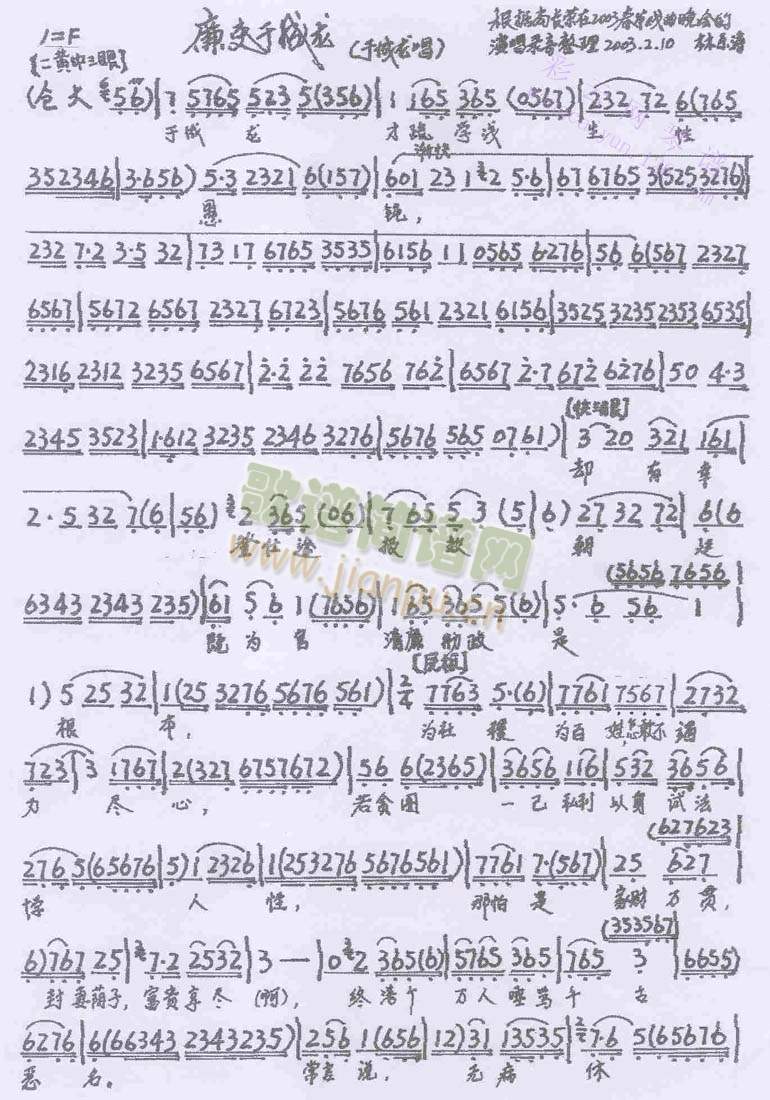 1=F 廉吏于成龙 (于成龙唱) 根据尚长荣在2003春节戏曲晚会的
[二黄中三眼] 演唱录音整理 2003.2.10
(仓 大 56)|7 5765 523 5(356)|1 165 365 (0567)|232 72 6(765
于成 龙 才疏 学浅 生 性
渐快
352346|3·656) 5·3 2321 6(157)|601 23 1 2 5·6|67 6765 3(5253276)|
愚 钝,
232 7·2 3·5 32|73 17 6765 3535|6156 11 0565 6276|56 6(567 2327
6567|5672 6567 2327 6723|5676 561 2321 6156|3525 3235 2353 6535|
2316 2312 3235 6567|2·2 22 7656 762|6567 2·7 672 6276|50 4·3
[快三眼]
2345 3523|1·612 3235 2346 3276|5676 565 0761)|3 20 321 161|
却 有幸
2·5 32 7(6|56) 2 365 (06)|765 5 3 (5|6) 27 32 72|6(6
登仕途 报效 朝 廷
(5656 7656|
6343 2343 235)|61 5 6 1 (7656)|165 365 5(6)|5· 6 56 1|
既为官 清廉勤政 是
[原板]
1) 5 25 32|1(25 3276 5676 561)|2/4 7763 5·(6)|7761 7567|2732
根 本, 为社稷 为百姓怎敢不竭
723|3 1767|2(327 6757672)|56 6(2365)|3656 116|532 3656|
力 尽 心, 若贪图 一己私利以身试法
(627623|
276 5(65676|5) 1 2326|1(253276 5676561)|7761 7·(567)|25 627|
悖 人 性, 那怕是 家财万贯,
(353567|
6) 767 25|7·2 2532|3 —|0 2 365(6)|5765 365|765 3|6655)
封妻荫子, 富贵享尽 (啊), 终落个 万人唾骂千 古
6276|6(66343 2343235)|256 1(656|12) 31 13535|7·6 5(65676|
恶 名。 常言说, 无病 休
歌谱简谱网
www.jianpu.cn